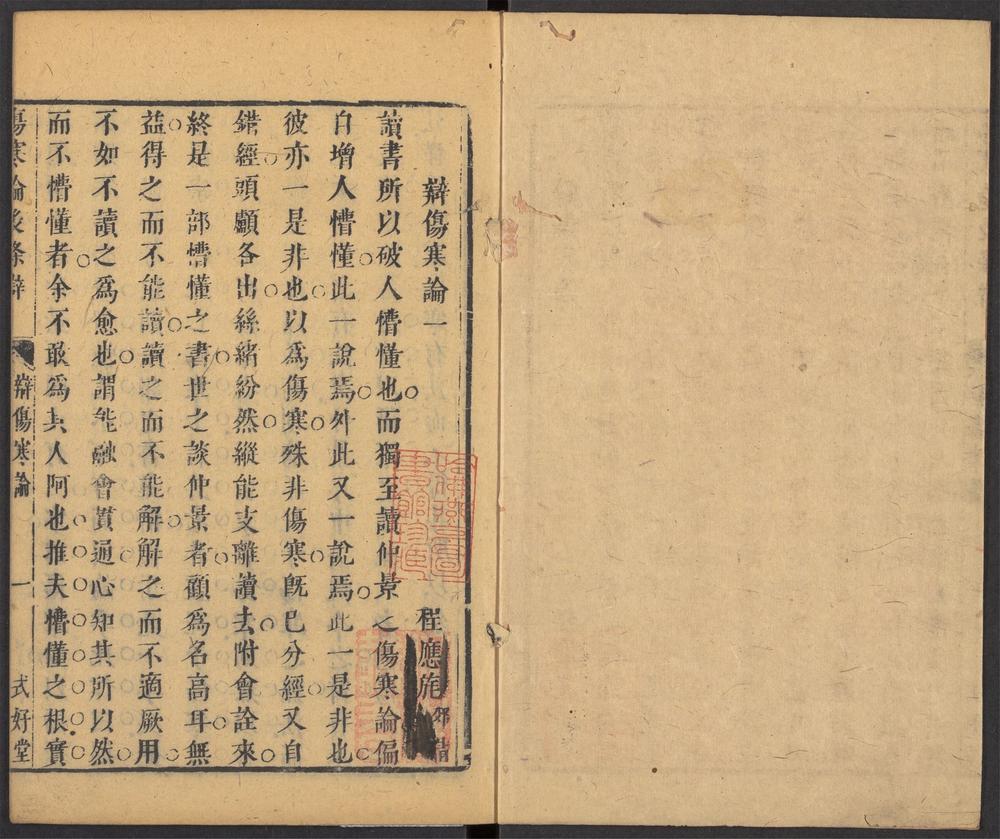 辯傷寒論一
程應旄郊倩
讀書所以破人懵懂也而獨至讀仲景之傷寒論偏
自增人懵懂此一說焉外此又一說焉此一是非也
彼亦一是非也以爲傷寒殊非傷寒旣已分經又自
錯經頭顱各出絲緒紛然縱能支離讀去附會詮來
終是一部懵懂之書世之談仲景者顧爲名高耳無
益得之而不能讀讀之而不能解解之而不適厥用
不如不讀之爲愈也謂能融會貫通心知其所以然
而不懵懂者余不敢爲其人阿也推夫懵懂之根實
傷寒論後條辯
辯傷寒論
一
式好堂